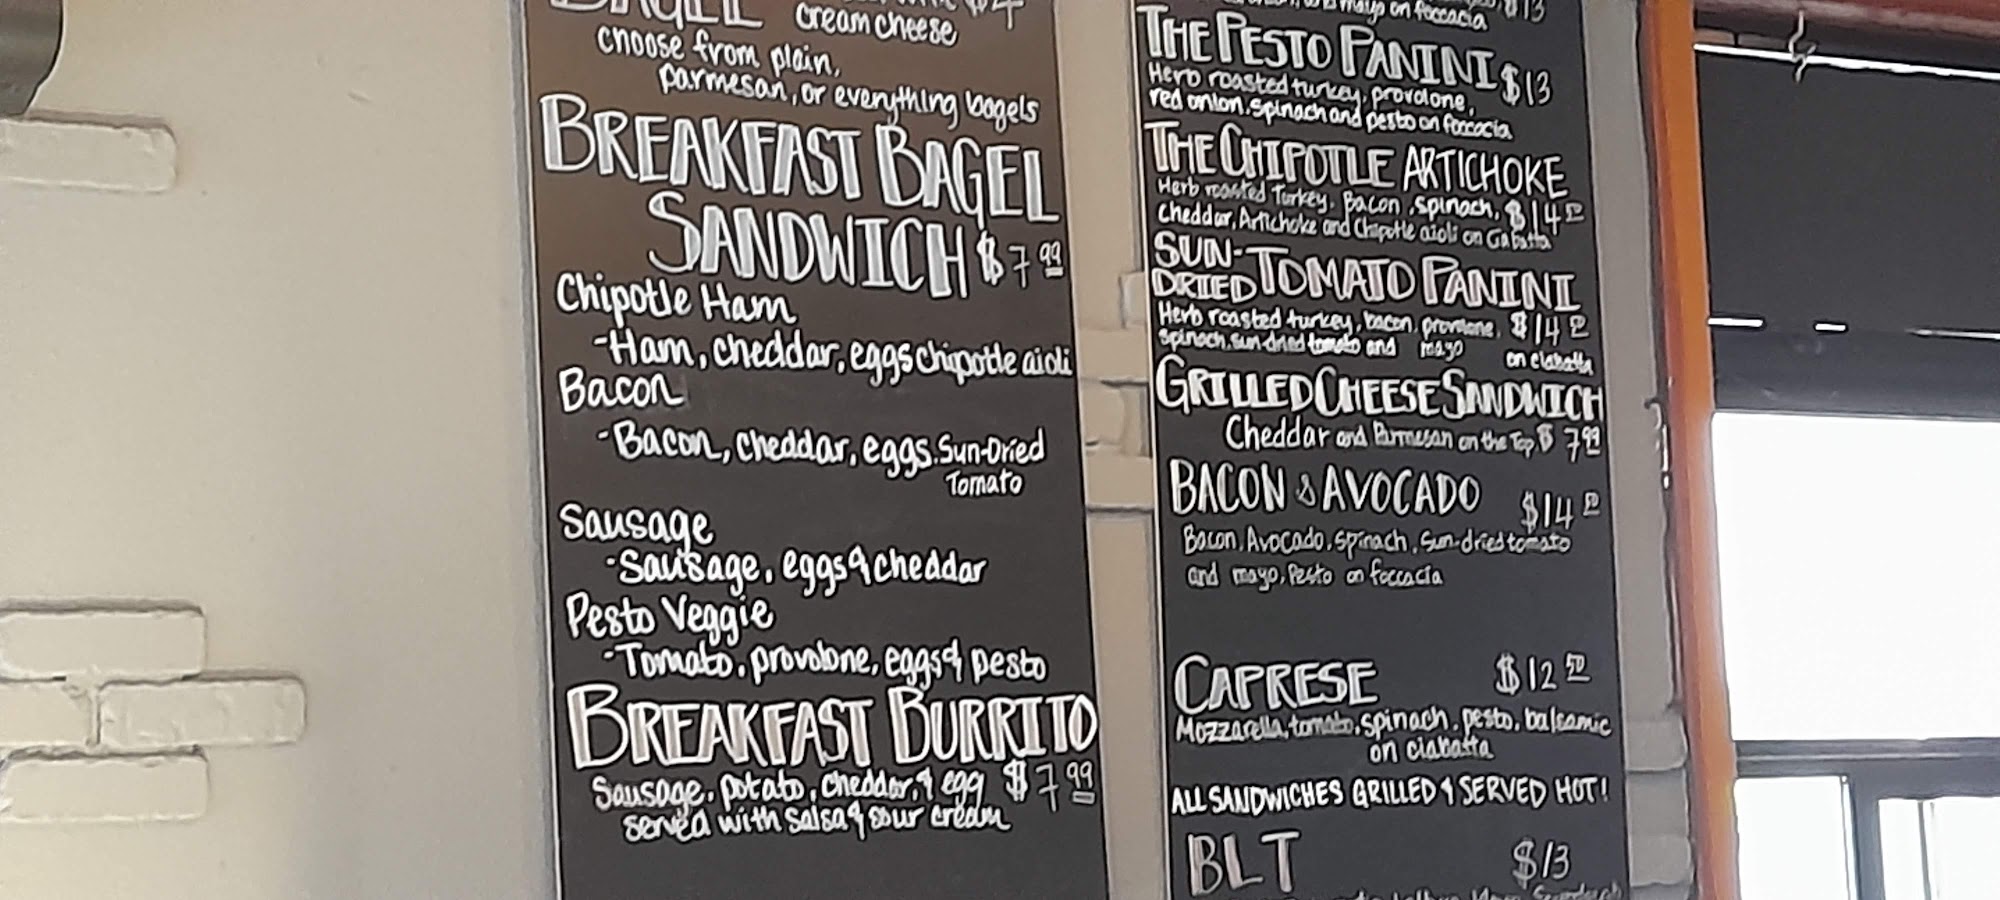 BAGEL cream cheese $4
choose from plain,
parmesan, or everything bagels
BREAKFAST BAGEL
SANDWICH $7.99
Chipotle Ham
-Ham, cheddar, eggs chipotle aioli
Bacon
-Bacon, cheddar, eggs. Sun-Dried
Tomato
Sausage
-Sausage, eggs & cheddar
Pesto Veggie
-Tomato, provolone, eggs & pesto
BREAKFAST BURRITO
Sausage, potato, cheddar, & egg $7.99
served with salsa & sour cream
mayo on foccacia $13
THE PESTO PANINI $13
Herb roasted turkey, provolone,
red onion, spinach and pesto on foccacia
THE CHIPOTLE ARTICHOKE
Herb roasted Turkey, Bacon, spinach, $14.50
cheddar, Artichoke and Chipotle aioli on Ciabatta
SUN-
DRIED TOMATO PANINI
Herb roasted turkey, bacon, provolone, $14
spinach, sun dried tomato and mayo on ciabatta
GRILLED CHEESE SANDWICH
Cheddar and Parmesan on the Top $7.99
BACON & AVOCADO $14
Bacon, Avocado, spinach, Sun-dried tomato
and mayo, Pesto on foccacia
CAPRESE $12.50
Mozzarella, tomato, spinach, pesto, balsamic
on ciabatta
ALL SANDWICHES GRILLED & SERVED HOT!
BLT $13